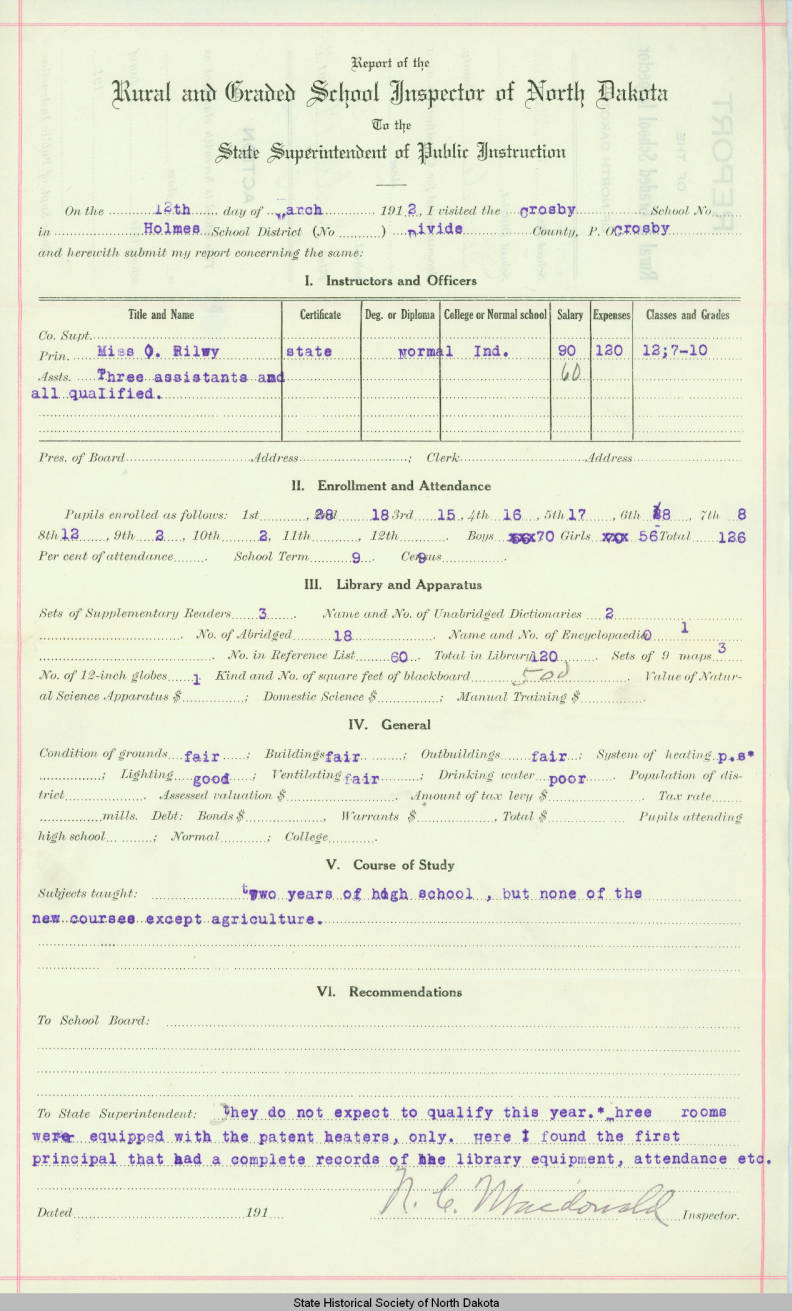 Report of the
Rural and Graded School Inspector of North Dakota
To the
State Superintendent of Public Instruction
On the 12th day of March 1912, I visited the Crosby School No
in Holmes School District (No ) Divide County, P. O. Crosby
and herewith submit my report concerning the same:
I. Instructors and Officers
Title and Name Certificate Deg. or Diploma College or Normal school Salary Expenses Classes and Grades
Co. Supt.
Prin. Miss O. Rilwy state Normal Ind. 90 120 12;7-10
Assts. Three assistants and 60
all qualified.
Pres. of Board Address ; Clerk Address
II. Enrollment and Attendance
Pupils enrolled as follows: 1st 28, 2nd 18 3rd 15, 4th 16, 5th 17, 6th 8, 7th 8
8th 12, 9th 2, 10th 2, 11th , 12th . Boys 70 Girls 56 Total 126
Per cent of attendance . School Term 9. Census 9.
III. Library and Apparatus
Sets of Supplementary Readers 3. Name and No. of Unabridged Dictionaries 2
. No. of Abridged 18. Name and No. of Encyclopaedia 0 1
. No. in Reference List 60. Total in Library 120. Sets of 9 maps 3
No. of 12-inch globes 1. Kind and No. of square feet of blackboard 500. Value of Natur-
al Science Apparatus $ ; Domestic Science $ ; Manual Training $ .
IV. General
Condition of grounds fair; Buildings fair; Outbuildings fair; System of heating p.s*
; Lighting good; Ventilating fair; Drinking water poor. Population of dis-
trict . Assessed valuation $ . Amount of tax levy $ . Tax rate
mills. Debt: Bonds $ , Warrants $ , Total $ Pupils attending
high school ; Normal ; College .
V. Course of Study
Subjects taught: Two years of high school , but none of the
new courses except agriculture.
VI. Recommendations
To School Board:
To State Superintendent: They do not expect to qualify this year.* Three rooms
were equipped with the patent heaters, only. Here I found the first
principal that had a complete records of the library equipment, attendance etc.
N. C. Macdonald
Dated 191 Inspector.
State Historical Society of North Dakota